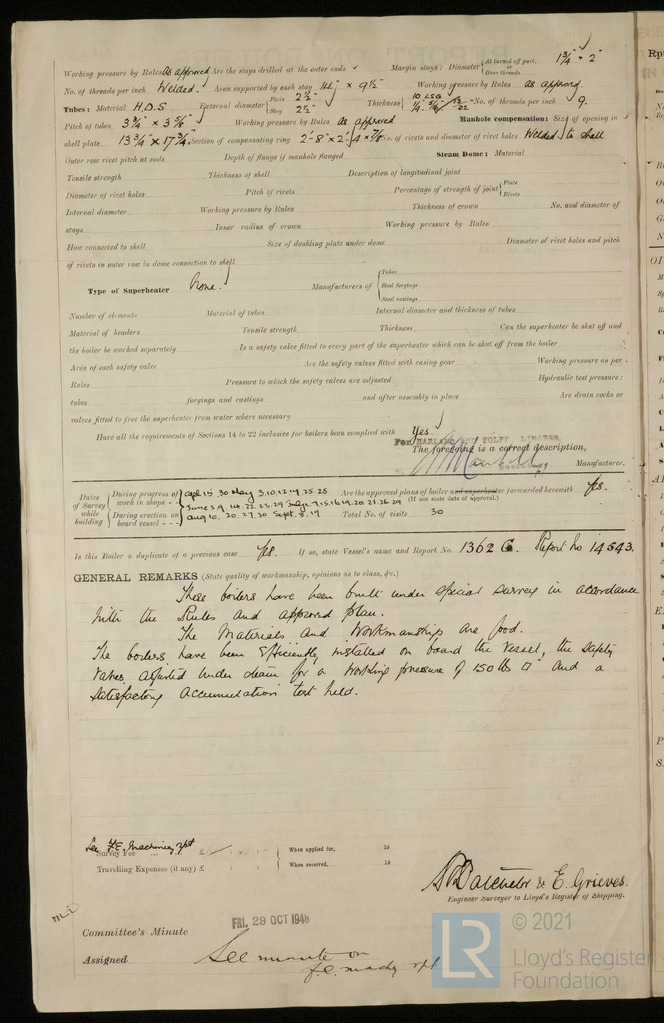 1¾" - 2"
Working pressure by Rules As approved Are the stays drilled at the outer ends Margin stays: Diameter { At turned off part, or Over threads
No. of threads per inch Welded. Area supported by each stay × 9½ Working pressure by Rules as approved.
Tubes: Material H.D.S External diameter { Plain 2½" Stay 2½" Thickness { 10 LSG ¼" 5/16" No. of threads per inch 9.
Pitch of tubes 3¾" × 3 5/8" Working pressure by Rules as approved Manhole compensation: Size of opening in
shell plate 13¾" × 17¾" Section of compensating ring 2'-8" × 2'- No. of rivets and diameter of rivet holes Welded to shell
Outer row rivet pitch at ends Depth of flange if manhole flanged Steam Dome: Material
Tensile strength Thickness of shell Description of longitudinal joint
Diameter of rivet holes Pitch of rivets Percentage of strength of joint { Plate Rivets
Internal diameter Working pressure by Rules Thickness of crown No. and diameter of
stays Inner radius of crown Working pressure by Rules
How connected to shell Size of doubling plate under dome Diameter of rivet holes and pitch
of rivets in outer row in dome connection to shell
Type of Superheater None. Manufacturers of { Tubes Steel forgings Steel castings
Number of elements Material of tubes Internal diameter and thickness of tubes
Material of headers Tensile strength Thickness Can the superheater be shut off and
the boiler be worked separately Is a safety valve fitted to every part of the superheater which can be shut off from the boiler
Area of each safety valve Are the safety valves fitted with easing gear Working pressure as per
Rules Pressure to which the safety valves are adjusted Hydraulic test pressure:
tubes forgings and castings and after assembly in place Are drain cocks or
valves fitted to free the superheater from water where necessary
Have all the requirements of Sections 14 to 22 inclusive for boilers been complied with Yes.
For HARLAND AND WOLFF, LIMITED
The foregoing is a correct description,
Secretary Manufacturer.
Dates of Survey while building { During progress of work in shops - - April 15 30 May 3,10,12,19,25,28 Are the approved plans of boiler and superheater forwarded herewith Yes.
(If not state date of approval.)
During erection on board vessel - - - Aug 10. 20. 27. 30 Sept. 8. 17 Total No. of visits 30
Is this Boiler a duplicate of a previous case Yes. If so, state Vessel's name and Report No. 1362 G. Report No 14543.
GENERAL REMARKS (State quality of workmanship, opinions as to class, &c.)
These boilers have been built under special survey in accordance
with the Rules and approved plan.
The Materials and Workmanship are good.
The boilers have been efficiently installed on board the Vessel, the safety
valves adjusted under steam for a working pressure of 150 lbs □" and a
satisfactory accumulation test held.
See F.E. Machinery rpt
Survey Fee ... £ When applied for, 19
Travelling Expenses (if any) £ When received, 19
Batchelor & E. Grieves.
Engineer Surveyor to Lloyd's Register of Shipping.
FRI. 29 OCT 1948
Committee's Minute
Assigned See minute on
F.E. machy rpt.
LR
© 2021
Lloyd's Register
Foundation